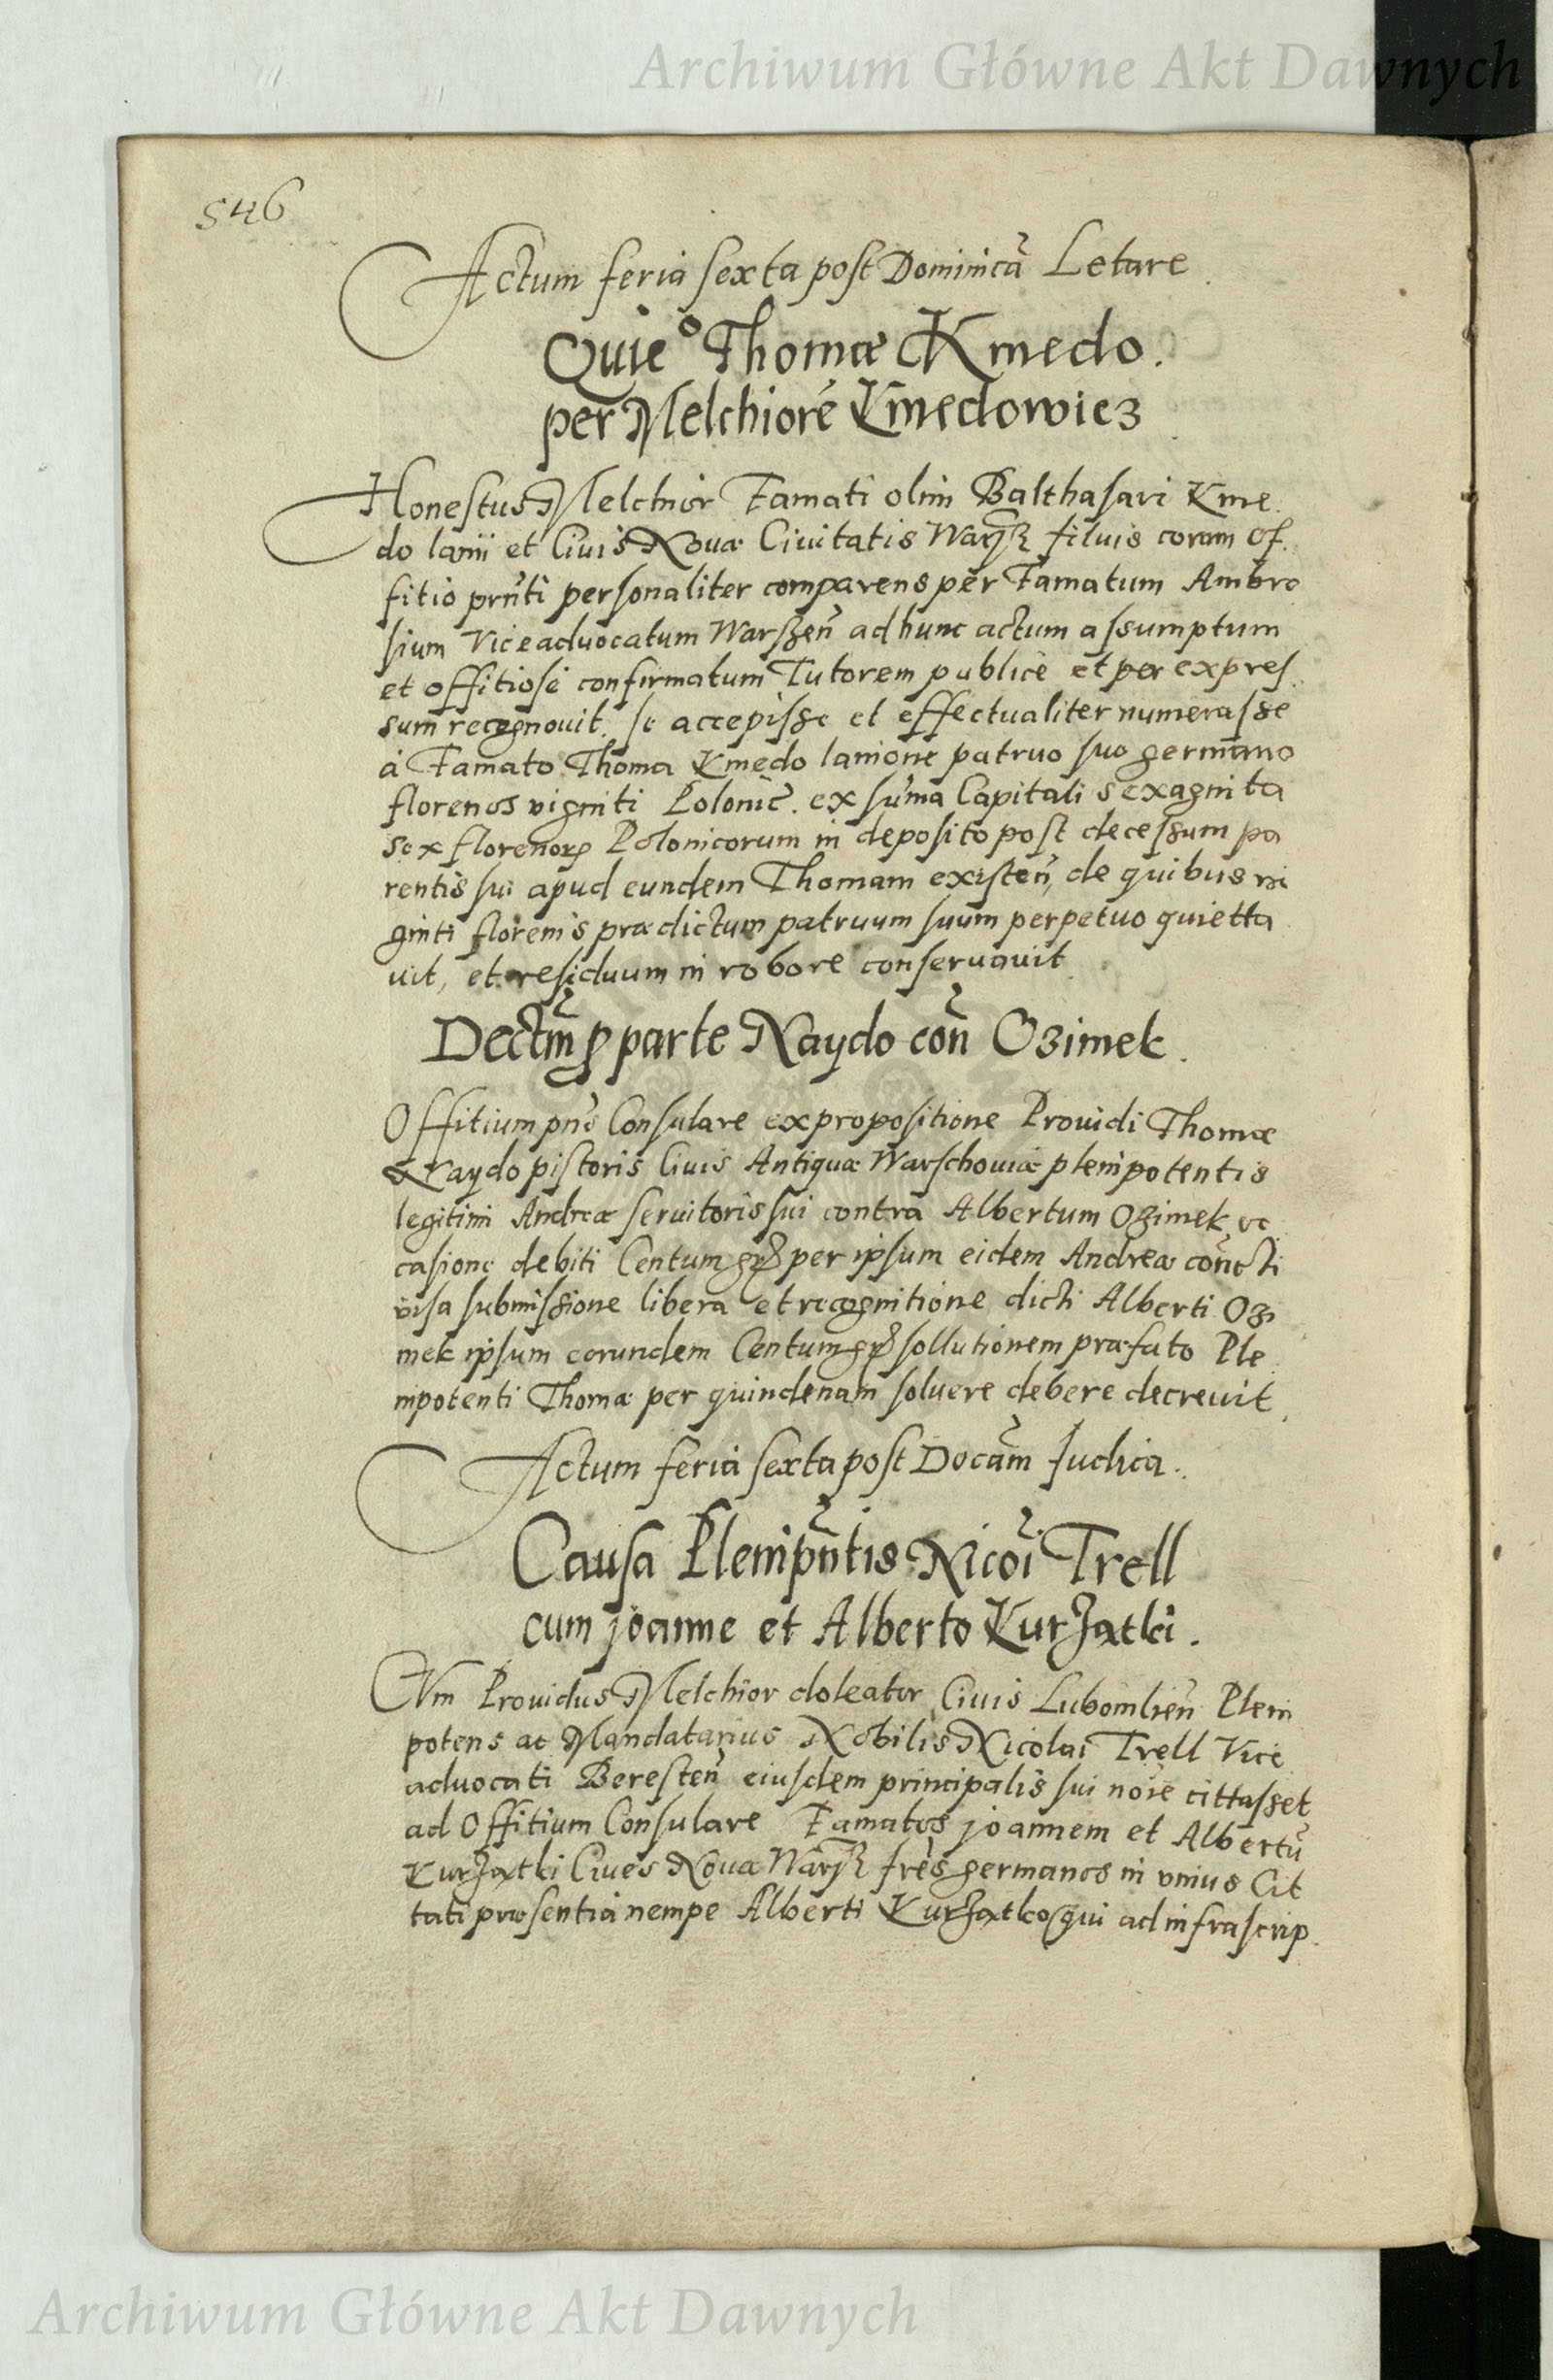 Archiwum Główne Akt Dawnych
546
Actum feria sexta post Dominicã Letare
Quieᵒ Thomæ Kmedo.
per Melchiorẽ Kmedowicz
Honestus Melchior Famati olim Balthasari Kme
do lanii et Civis Novæ Civitatis Warß filius coram Of
fitio prn̄ti personaliter comparens per Famatum Ambro
sium Viceadvocatum Warszen̄ ad hunc actum assumptum
et offitiosè confirmatum Tutorem publicè et per expres
sum recognouit. se accepisse et effectualiter numerasse
à Famato Thoma Kmedo lanione patruo suo germano
florenos viginti Polonic̄. ex sum̄a Capitali sexaginta
sex florenorꝝ Polonicorum in deposito post decessum pa
rentis sui apud eundem Thomam existen̄, de quibus vi
ginti florenis prædictum patruum suum perpetuo quietta
uit, et residuum in robore conseruauit
Dectm̄ ꝓ parte Naydo con̄ Ozimek.
Offitium pn̄s Consulare ex propositione Prouidi Thomæ
Naydo pistoris Ciuis Antiquæ Warschouiæ plenipotentis
legitimi Andreæ seruitoris sui contra Albertum Ozimek oc
casione debiti Centum per ipsum eidem Andreæ con̄cti
visa submissione libera et recognitione dicti Alberti Ozi
mek ipsum eorundem Centum sollutionem præfato Ple
nipotenti Thomæ per quindenam soluere debere decreuit
Actum feria sexta post Docām Iudica.
Causa Plenipn̄tis Nicoī Trell
cum joanne et Alberto Kurzatki.
CVm Prouidus Melchior doleator Ciuis Lubomlien̄ Pleni
potens ac Mandatarius Nobilis Nicolai Trell Vice
aduocati Beresten̄ eiusdem principalis sui noīe cittasset
ad Offitium Consulare Famatos joannem et Albertū
Kurzatki Ciues Nouæ Warß frēs germanos in vnius Cit
tati præsentia nempe Alberti Kurzatko, qui ad infrascrip
Archiwum Główne Akt Dawnych